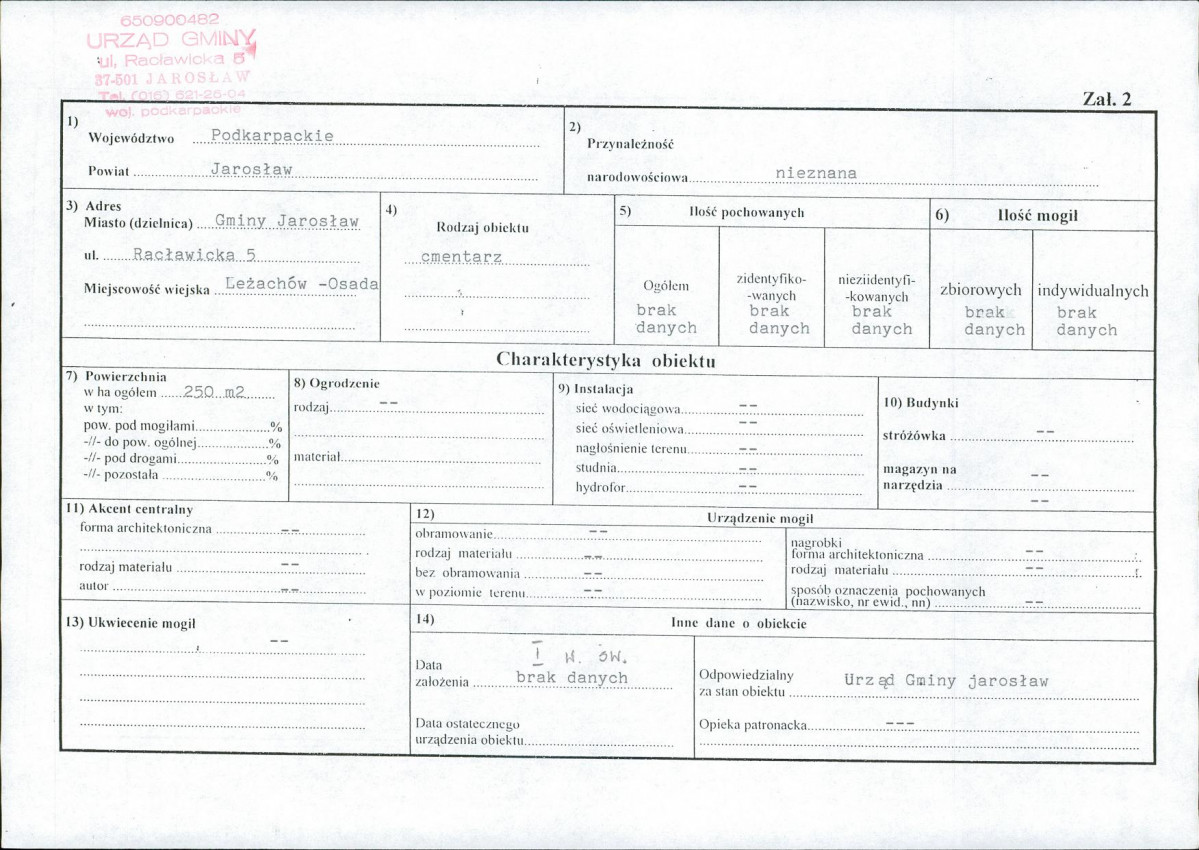 650900482
URZĄD GMINY
ul. Racławicka 5
37-501 JAROSŁAW
Tel. (016) 621-26-04
woj. podkarpackie
Zał. 2
1)
Województwo ..... Podkarpackie
Powiat ..... Jarosław
2)
Przynależność
narodowościowa ..... nieznana
3) Adres
Miasto (dzielnica) ..... Gminy Jarosław
ul. ..... Racławicka 5
Miejscowość wiejska ..... Leżachów -Osada
4)
Rodzaj obiektu
cmentarz
5) Ilość pochowanych
Ogółem
brak
danych
zidentyfiko-
-wanych
brak
danych
nieziidentyfi-
-kowanych
brak
danych
6) Ilość mogił
zbiorowych
brak
danych
indywidualnych
brak
danych
Charakterystyka obiektu
7) Powierzchnia
w ha ogółem ..... 250 m2
w tym:
pow. pod mogiłami ..... %
-//- do pow. ogólnej ..... %
-//- pod drogami ..... %
-//- pozostała ..... %
8) Ogrodzenie
rodzaj ..... --
materiał .....
9) Instalacja
sieć wodociągowa ..... --
sieć oświetleniowa ..... --
nagłośnienie terenu ..... --
studnia ..... --
hydrofor ..... --
10) Budynki
stróżówka ..... --
magazyn na --
narzędzia .....
--
11) Akcent centralny
forma architektoniczna ..... --
rodzaj materiału ..... --
autor ..... --
12) Urządzenie mogił
obramowanie ..... --
rodzaj materiału ..... --
bez obramowania ..... --
w poziomie terenu ..... --
nagrobki
forma architektoniczna ..... --
rodzaj materiału ..... --
sposób oznaczenia pochowanych
(nazwisko, nr ewid., nn) ..... --
13) Ukwiecenie mogił
--
14) Inne dane o obiekcie
I w. św.
Data
założenia ..... brak danych
Data ostatecznego
urządzenia obiektu .....
Odpowiedzialny
za stan obiektu ..... Urząd Gminy jarosław
Opieka patronacka ..... ---